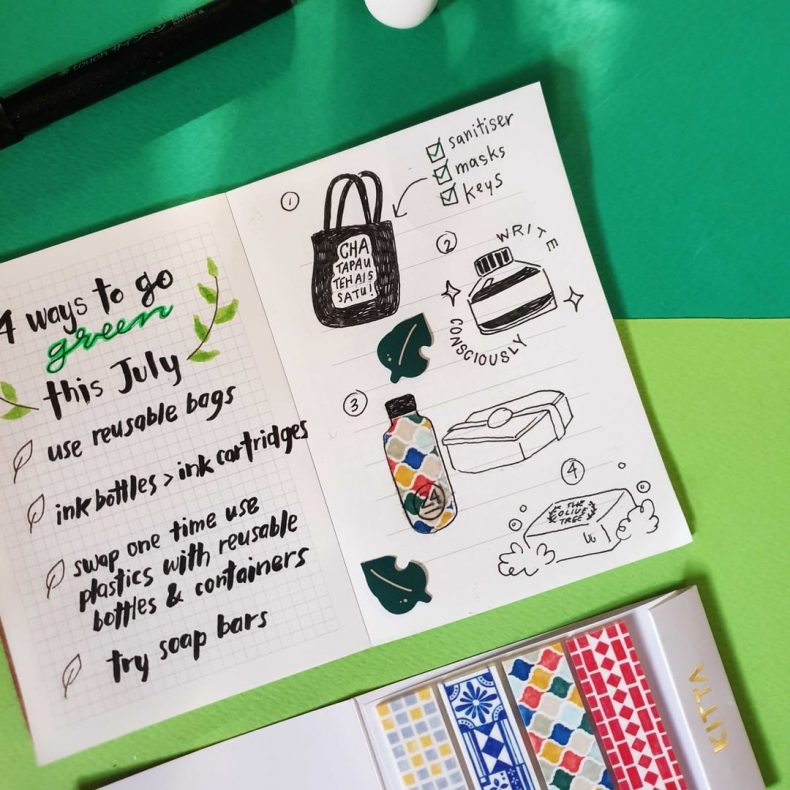 4 ways to go
green
this July
use reusable bags
ink bottles > ink cartridges
swap one time use
plastics with reusable
bottles & containers
try soap bars
1
CHA
TAPAU
TEHAIS
SATU!
sanitiser
masks
keys
2
WRITE
CONSCIOUSLY
3
4
THE
OLIVE
TREE
KITTA
touch